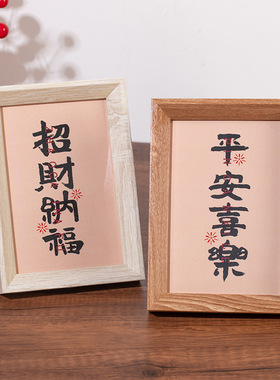 招財納福
平安喜樂